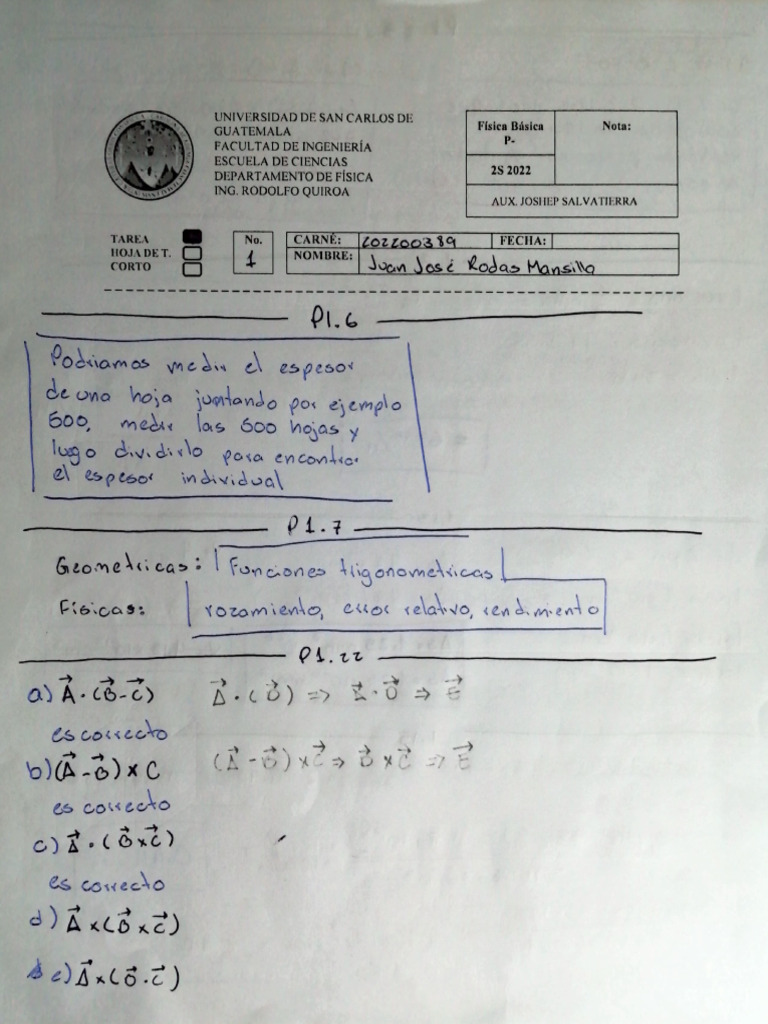 UNIVERSIDAD DE SAN CARLOS DE
GUATEMALA
FACULTAD DE INGENIERÍA
ESCUELA DE CIENCIAS
DEPARTAMENTO DE FÍSICA
ING. RODOLFO QUIROA
Física Básica
P-
Nota:
2S 2022
AUX. JOSHEP SALVATIERRA
TAREA
HOJA DE T.
CORTO
No.
1
CARNÉ: 202200389 FECHA:
NOMBRE: Juan José Rodas Mansilla
P1.6
Podriamos medir el espesor
de una hoja juntando por ejemplo
500, medir las 500 hojas y
luego dividirlo para encontrar
el espesor individual
P1.7
Geometricas: Funciones trigonometricas
Físicas: rozamiento, error relativo, rendimiento
P1.22
a) A⃗ · (B⃗ - C⃗) A⃗ · (D⃗) => A⃗ · D⃗ => E⃗
es correcto
b) (A⃗ - B⃗) × C (A⃗ - B⃗) × C⃗ => D⃗ × C⃗ => E⃗
es correcto
c) A⃗ · (B⃗ × C⃗)
es correcto
d) A⃗ × (B⃗ × C⃗)
e) A⃗ × (B⃗ · C⃗)